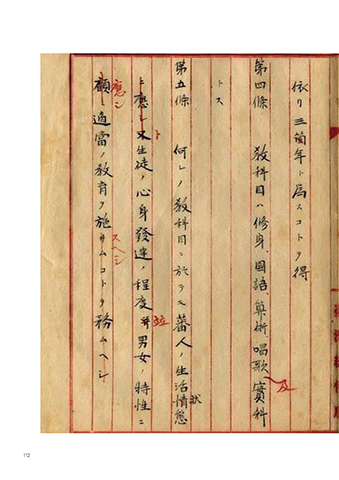 依リ三箇年ト爲スコトヲ得
第四條 教科目ハ修身、國語、算術、唱歌、實科
及
トス
第五條 何レノ教科目ニ於テモ蕃人ノ生活情態
状
ト
ニ應シ又生徒ノ心身發達ノ程度並男女ノ特性ニ
竝
應シ
顧ミ適當ノ教育ヲ施サムコトヲ務ムヘシ
スヘシ
112